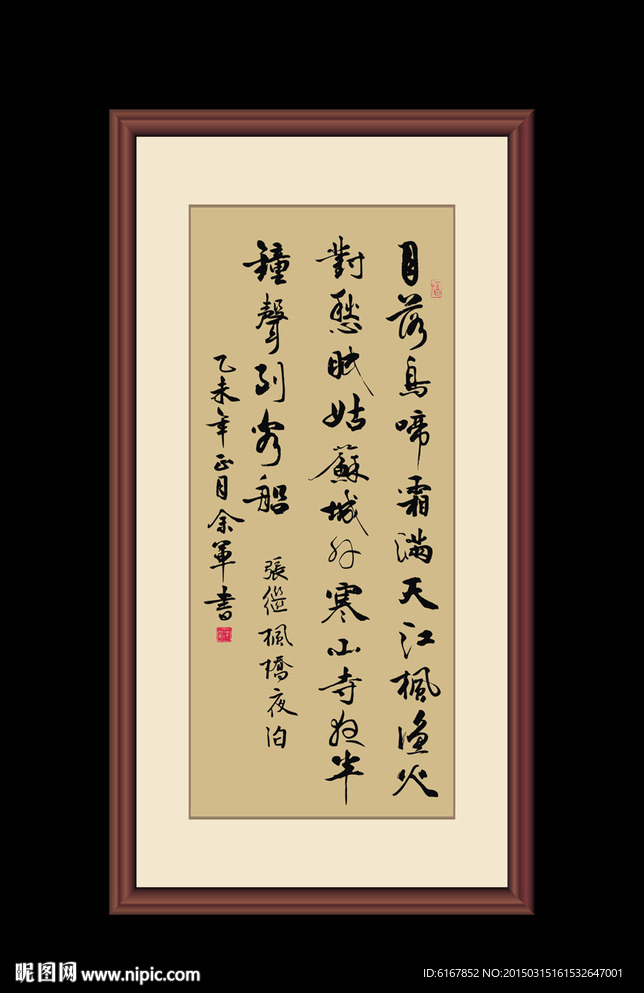 月落烏啼霜滿天江楓漁火
對愁眠姑蘇城外寒山寺夜半
鐘聲到客船
張繼楓橋夜泊
乙未年正月余軍書
昵图网 www.nipic.com
ID:6167852 NO:20150315161532647001